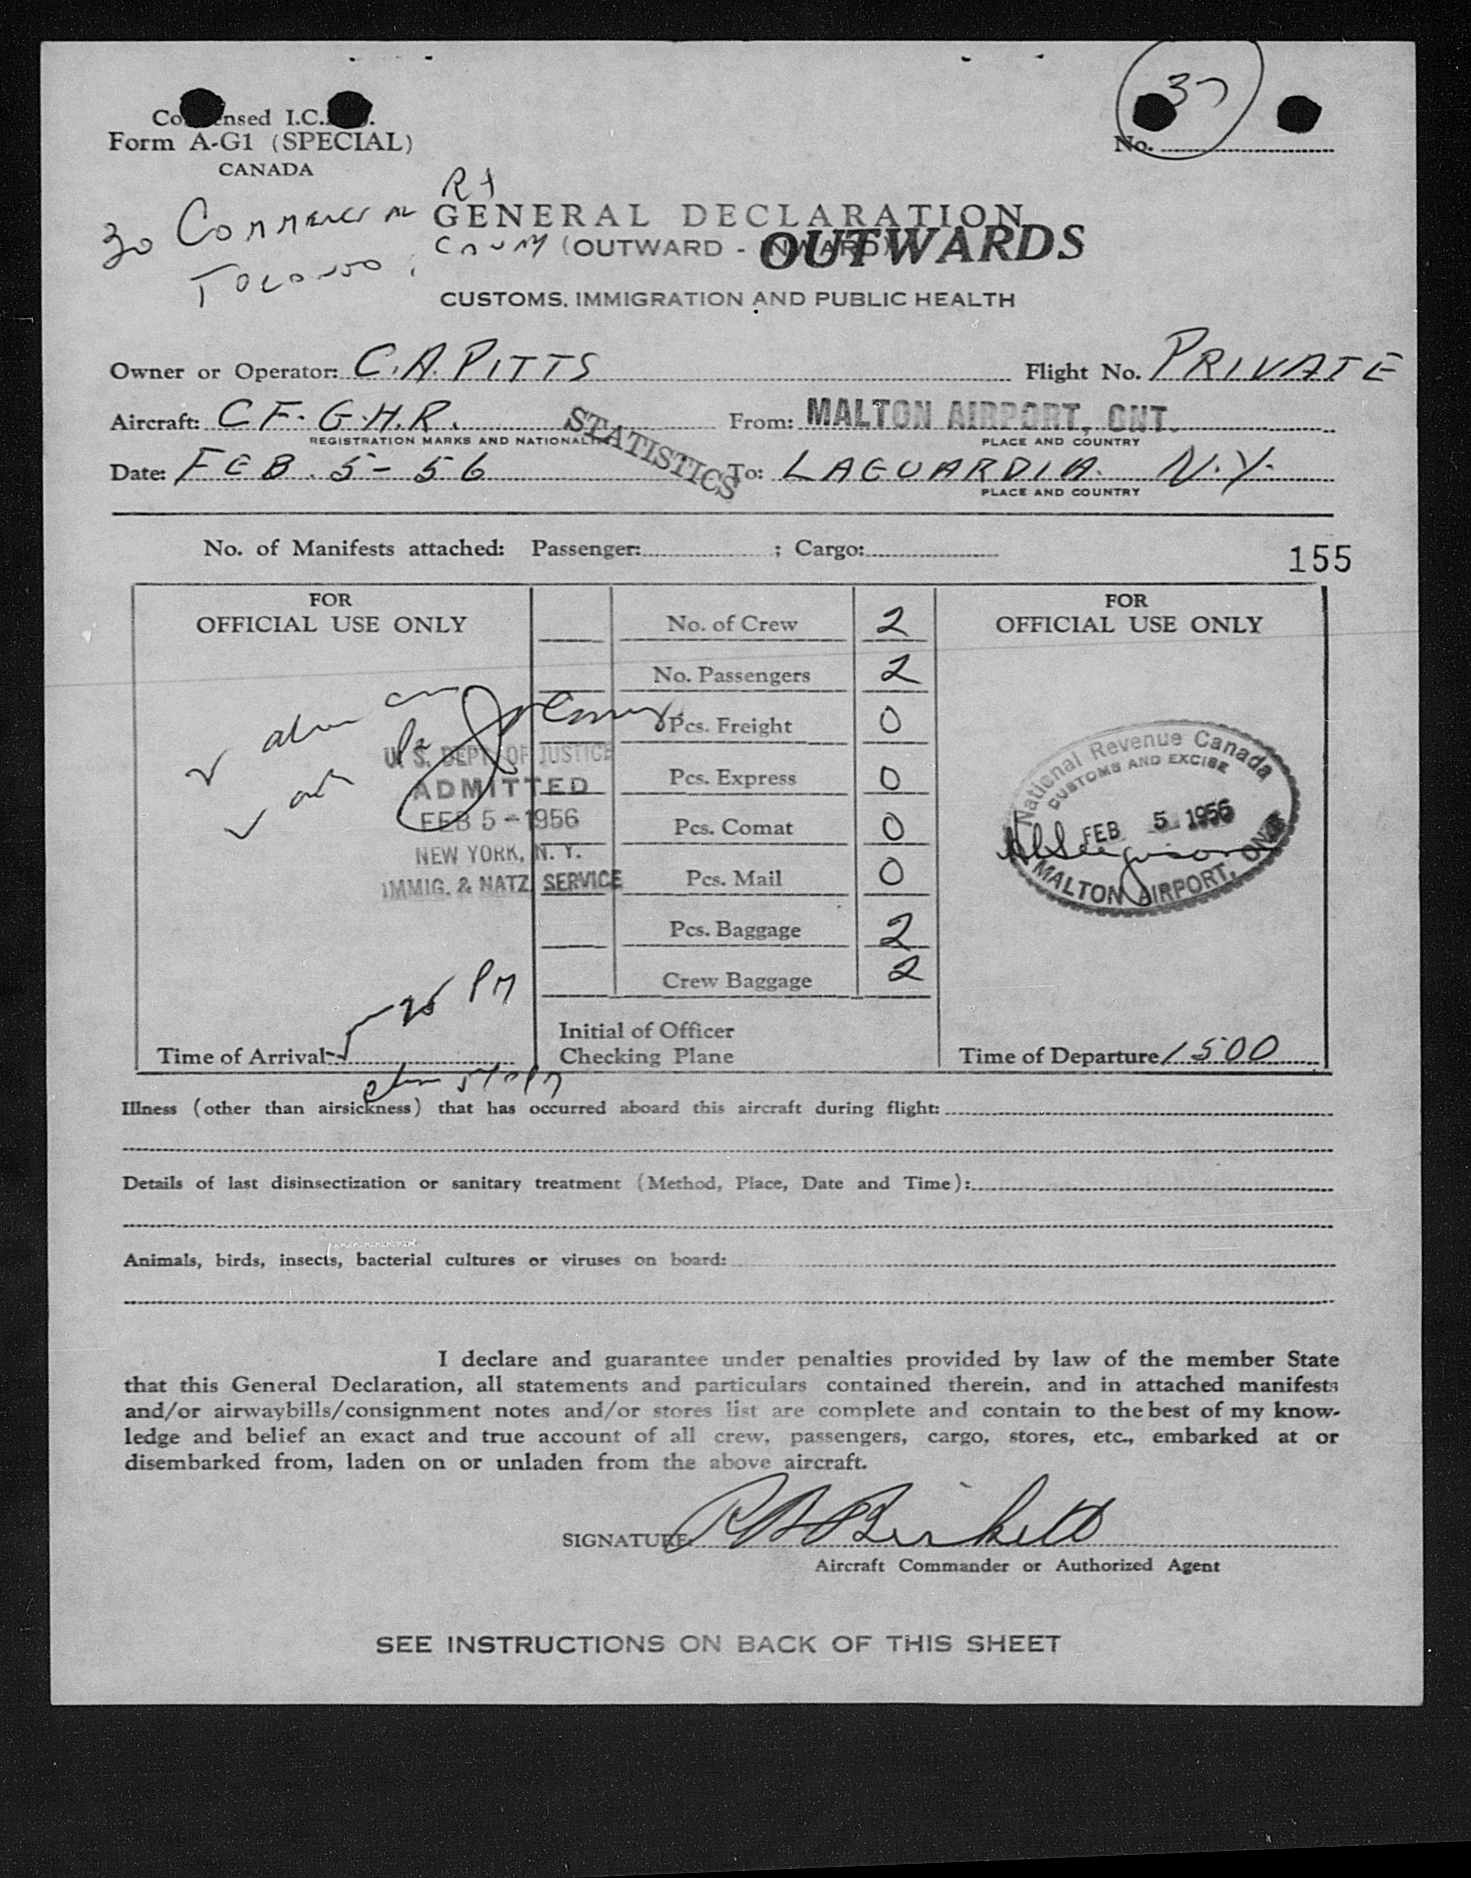 37
Form A-G1 (SPECIAL)
No.
CANADA
30
GENERAL DECLARATION
(OUTWARD - INWARD)
OUTWARDS
CUSTOMS, IMMIGRATION AND PUBLIC HEALTH
Owner or Operator: C.A. PITTS Flight No. PRIVATE
Aircraft: CF-G.H.R. From: MALTON AIRPORT, ONT.
REGISTRATION MARKS AND NATIONALITY PLACE AND COUNTRY
STATISTICS
Date: FEB. 5-56 To: LAGUARDIA. N.Y.
PLACE AND COUNTRY
No. of Manifests attached: Passenger: ; Cargo:
155
FOR
OFFICIAL USE ONLY
No. of Crew 2
No. Passengers 2
Pcs. Freight 0
Pcs. Express 0
Pcs. Comat 0
Pcs. Mail 0
Pcs. Baggage 2
Crew Baggage 2
U. S. DEPT. OF JUSTICE
ADMITTED
FEB 5 - 1956
NEW YORK, N. Y.
IMMIG. & NATZ. SERVICE
FOR
OFFICIAL USE ONLY
National Revenue Canada
CUSTOMS AND EXCISE
FEB 5 1956
MALTON AIRPORT, ONT.
25 PM
Time of Arrival
Initial of Officer
Checking Plane
Time of Departure 1500
Illness (other than airsickness) that has occurred aboard this aircraft during flight:
Details of last disinsectization or sanitary treatment (Method, Place, Date and Time):
Animals, birds, insects, bacterial cultures or viruses on board:
I declare and guarantee under penalties provided by law of the member State
that this General Declaration, all statements and particulars contained therein, and in attached manifests
and/or airwaybills/consignment notes and/or stores list are complete and contain to the best of my know-
ledge and belief an exact and true account of all crew, passengers, cargo, stores, etc., embarked at or
disembarked from, laden on or unladen from the above aircraft.
SIGNATURE:
Aircraft Commander or Authorized Agent
SEE INSTRUCTIONS ON BACK OF THIS SHEET